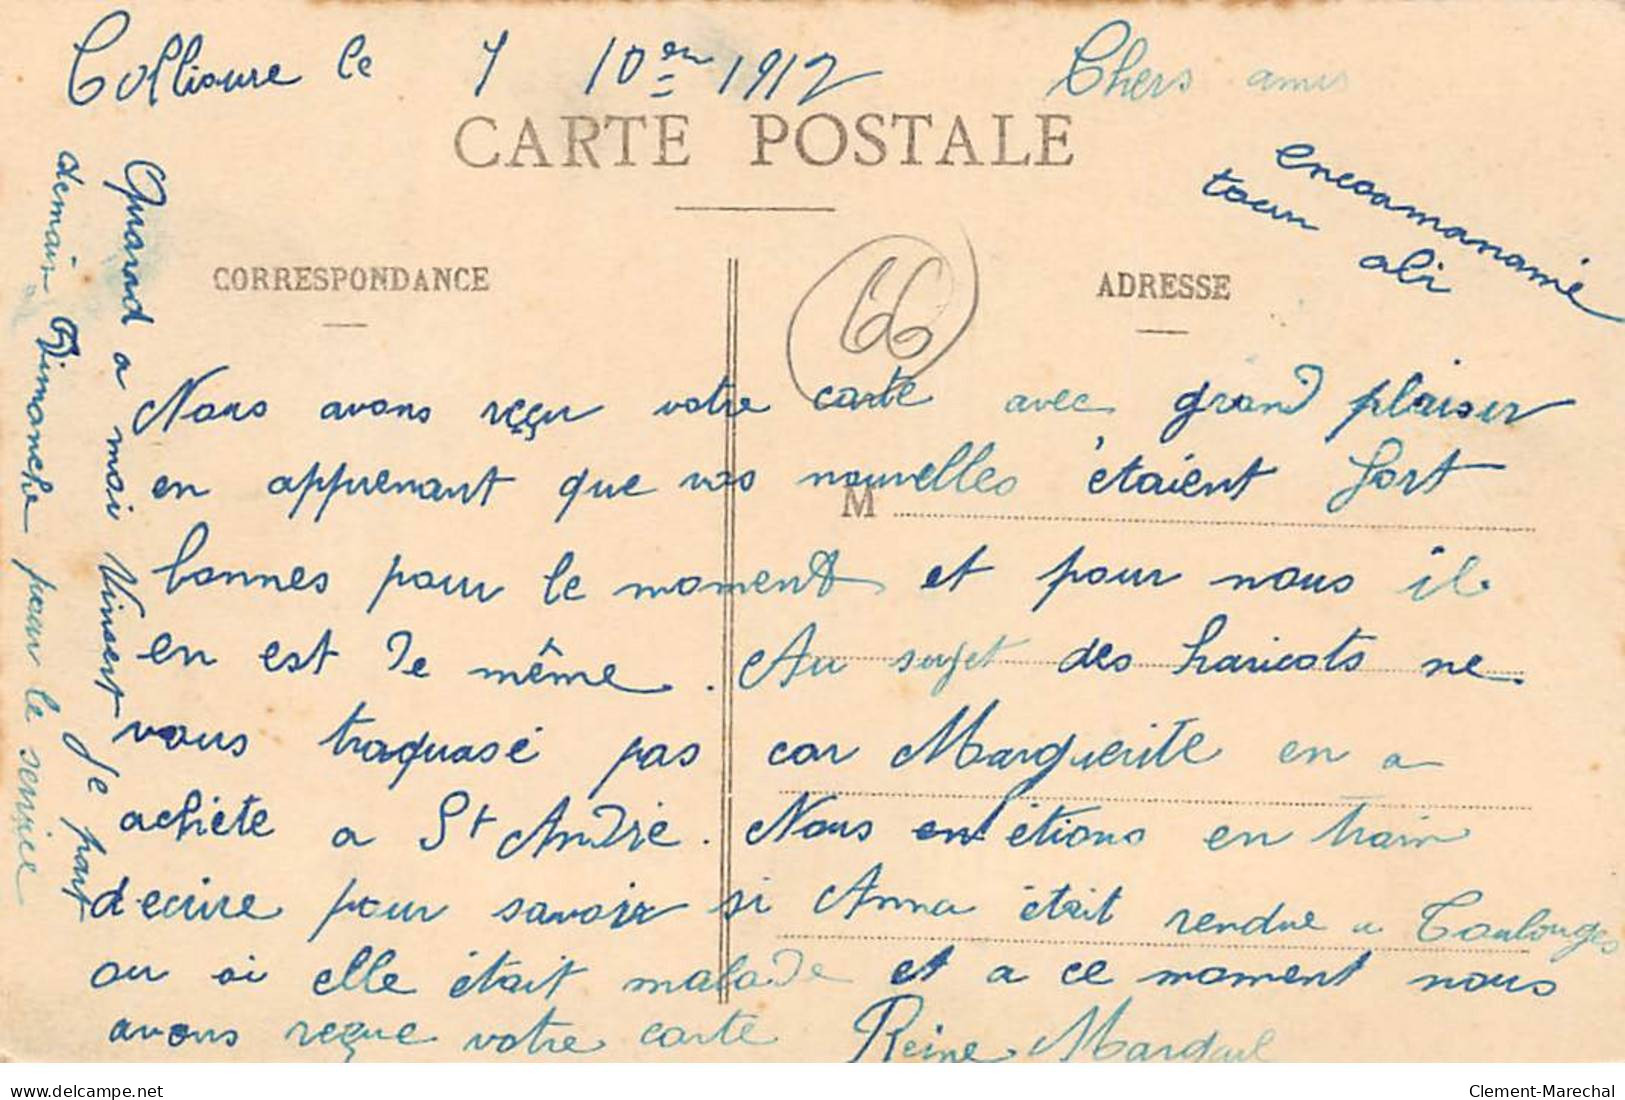 Collioure le 7 10re 1912
Chers amis
CARTE POSTALE
encomanamé
toun
CORRESPONDANCE
66
ADRESSE
Nous avons reçu votre carte avec grand plaisir
en apprenant que vos nouvelles étaient fort
M
bonnes pour le moment et pour nous il
en est de même. Au sujet des haricots ne
vous traquasé pas car Marguerite en a
achète a St André. Nous en étions en train
d'ecrire pour savoir si Anna était rendue a Toulouges
ou si elle était malade et a ce moment nous
avons reçue votre carte Reine
Quand a moi Vinsent Je part
demain Dimanche pour le service
delcampe.net
Clement-Marechal